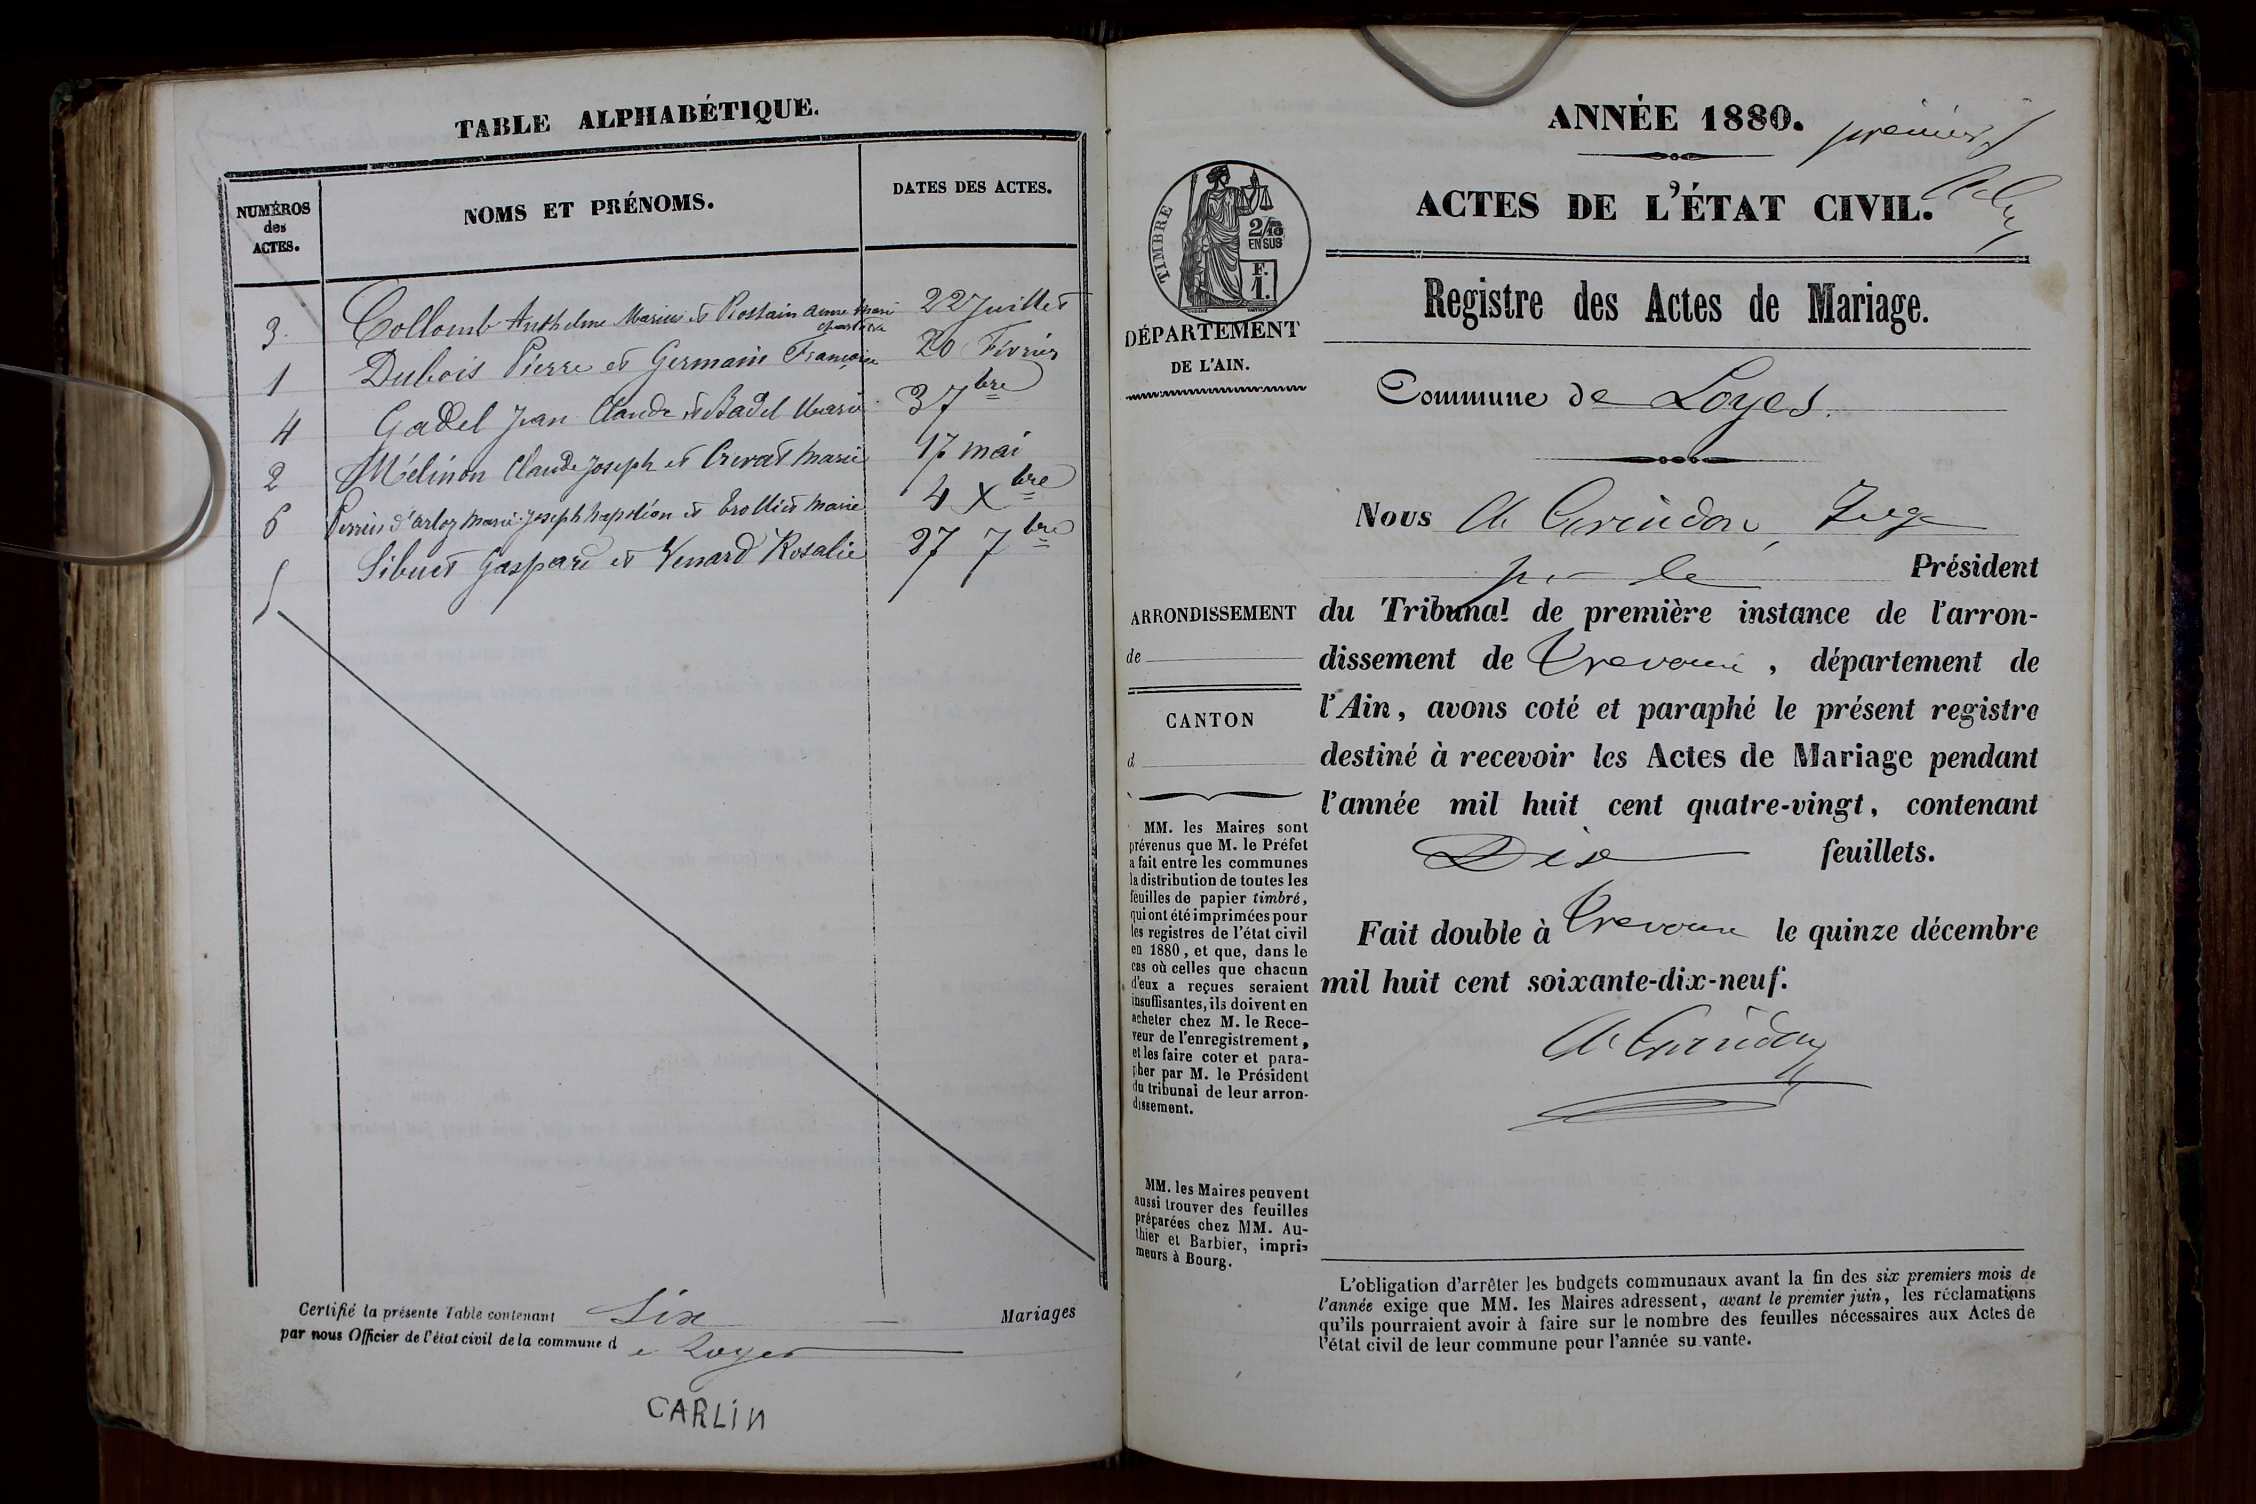 TABLE ALPHABÉTIQUE.
NUMÉROS
des
ACTES.
NOMS ET PRÉNOMS.
DATES DES ACTES.
3 Collomb Anthelme Marius et Rostain Anne Marie 22 Juillet
1 Dubois Pierre et Germain Françoise 20 Février
4 Gadel Jean Claude et Badel Marie 3 7bre
2 Mélinon Claude Joseph et Crevat Marie 17 mai
6 Perrin d'arloz Marie Joseph Napoléon et Trolliet Marie 4 Xbre
5 Sibuet Gaspard et Venard Rosalie 27 7bre
Certifié la présente Table contenant Six Mariages
par nous Officier de l'état civil de la commune d e Loyes
CARLIN
ANNÉE 1880.
premier
ACTES DE L'ÉTAT CIVIL.
TIMBRE
2/10
EN SUS
F.
1.
Registre des Actes de Mariage.
DÉPARTEMENT
DE L'AIN.
Commune de Loyes.
Nous Ch Grindon, Juge
pr le Président
ARRONDISSEMENT
de
CANTON
d
du Tribunal de première instance de l'arron-
dissement de Trevoux, département de
l'Ain, avons coté et paraphé le présent registre
destiné à recevoir les Actes de Mariage pendant
l'année mil huit cent quatre-vingt, contenant
Dix feuillets.
Fait double à Trevoux le quinze décembre
mil huit cent soixante-dix-neuf.
Ch Grindon
MM. les Maires sont
prévenus que M. le Préfet
a fait entre les communes
la distribution de toutes les
feuilles de papier timbré,
qui ont été imprimées pour
les registres de l'état civil
en 1880, et que, dans le
cas où celles que chacun
d'eux a reçues seraient
insuffisantes, ils doivent en
acheter chez M. le Rece-
veur de l'enregistrement,
et les faire coter et para-
pher par M. le Président
du tribunal de leur arron-
dissement.
MM. les Maires peuvent
aussi trouver des feuilles
préparées chez MM. Au-
thier et Barbier, impri-
meurs à Bourg.
L'obligation d'arrêter les budgets communaux avant la fin des six premiers mois de
l'année exige que MM. les Maires adressent, avant le premier juin, les réclamations
qu'ils pourraient avoir à faire sur le nombre des feuilles nécessaires aux Actes de
l'état civil de leur commune pour l'année su vante.